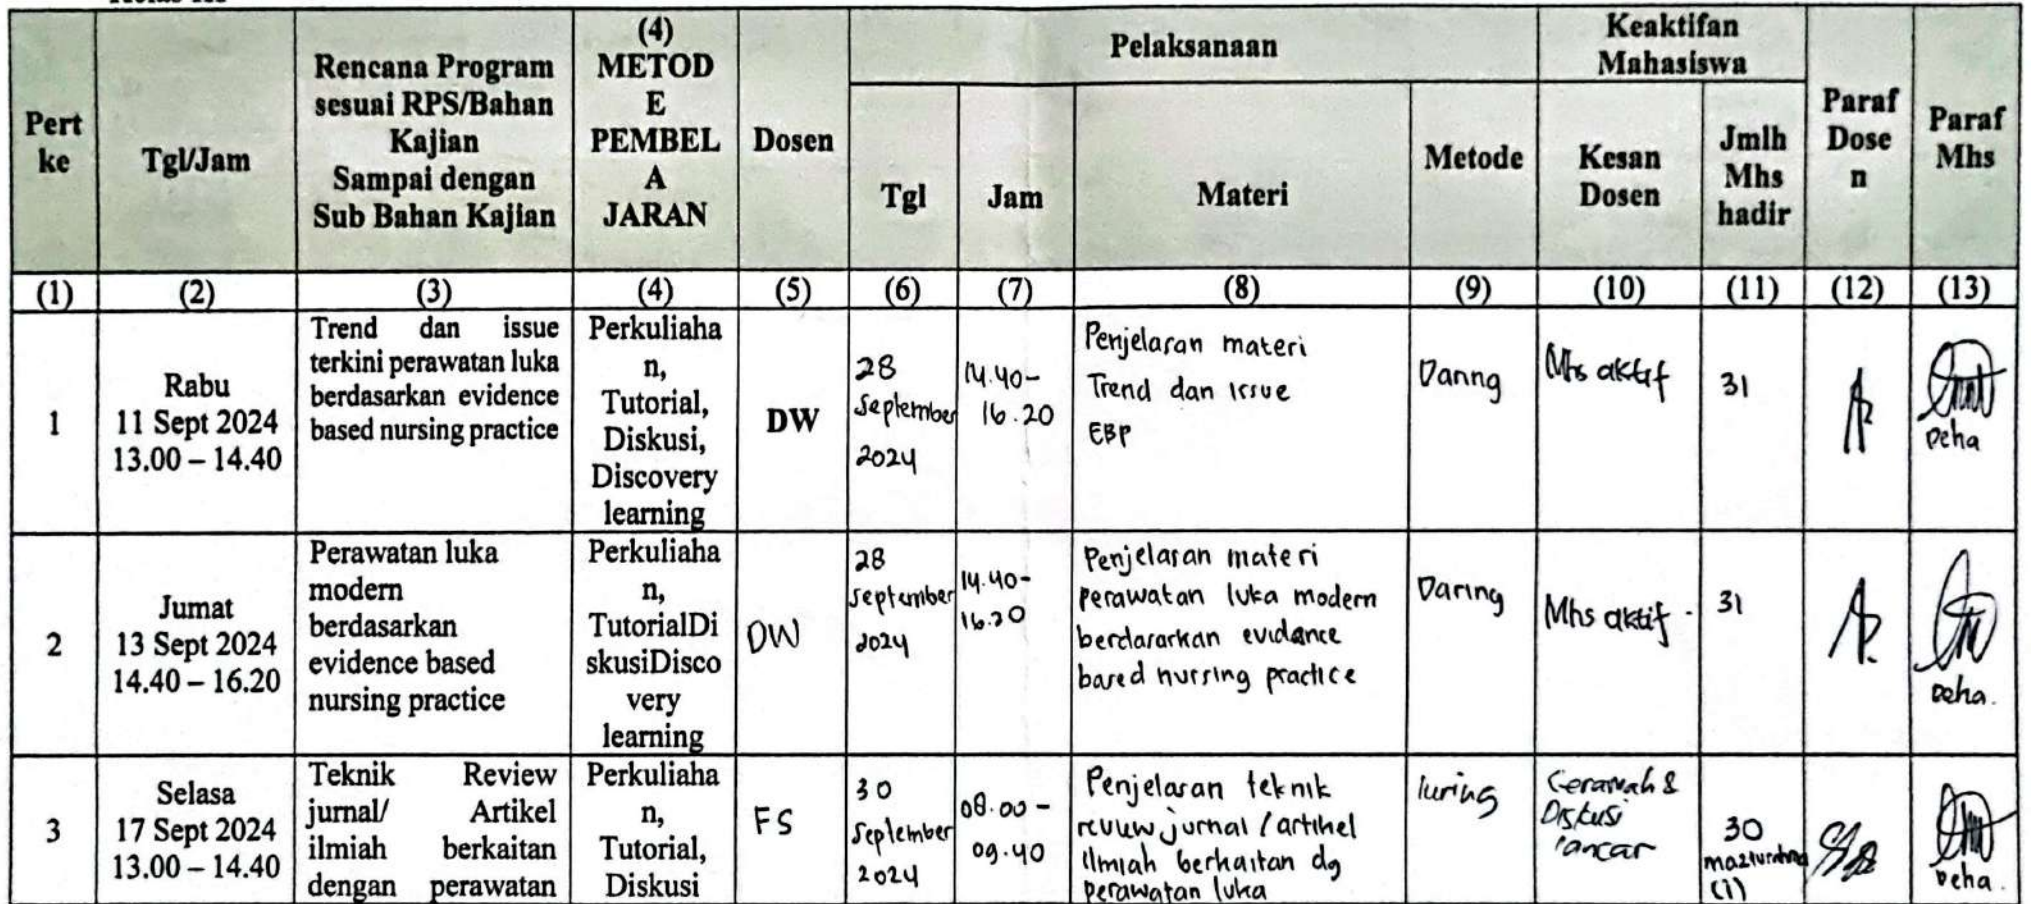 Pert
ke
Tgl/Jam
Rencana Program
sesuai RPS/Bahan
Kajian
Sampai dengan
Sub Bahan Kajian
(4)
METOD
E
PEMBEL
A
JARAN
Dosen
Pelaksanaan
Tgl
Jam
Materi
Metode
Keaktifan
Mahasiswa
Kesan
Dosen
Jmlh
Mhs
hadir
Paraf
Dose
n
Paraf
Mhs
(1)
(2)
(3)
(4)
(5)
(6)
(7)
(8)
(9)
(10)
(11)
(12)
(13)
1
Rabu
11 Sept 2024
13.00 – 14.40
Trend dan issue
terkini perawatan luka
berdasarkan evidence
based nursing practice
Perkuliaha
n,
Tutorial,
Diskusi,
Discovery
learning
DW
28
September
2024
14.40-
16.20
Penjelasan materi
Trend dan issue
EBP
Daring
Mhs aktif
31
Deha
2
Jumat
13 Sept 2024
14.40 – 16.20
Perawatan luka
modern
berdasarkan
evidence based
nursing practice
Perkuliaha
n,
TutorialDi
skusiDisco
very
learning
DW
28
September
2024
14.40-
16.20
Penjelasan materi
perawatan luka modern
berdasarkan evidance
based nursing practice
Daring
Mhs aktif.
31
Deha.
3
Selasa
17 Sept 2024
13.00 – 14.40
Teknik Review
jurnal/ Artikel
ilmiah berkaitan
dengan perawatan
Perkuliaha
n,
Tutorial,
Diskusi
FS
30
September
2024
08.00 -
09.40
Penjelasan teknik
review jurnal / artikel
ilmiah berkaitan dg
perawatan luka
luring
Ceramah &
Diskusi
lancar
30
(1)
Deha.